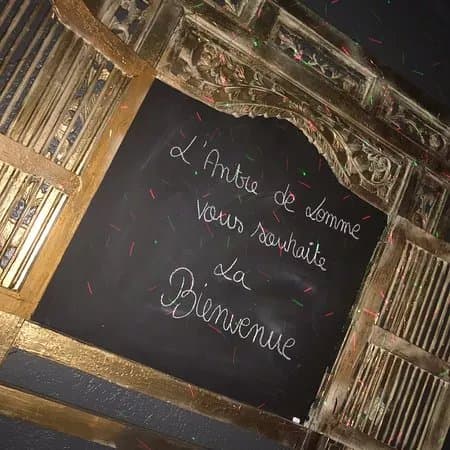 L'Antre de Lomme
vous souhaite
La
Bienvenue